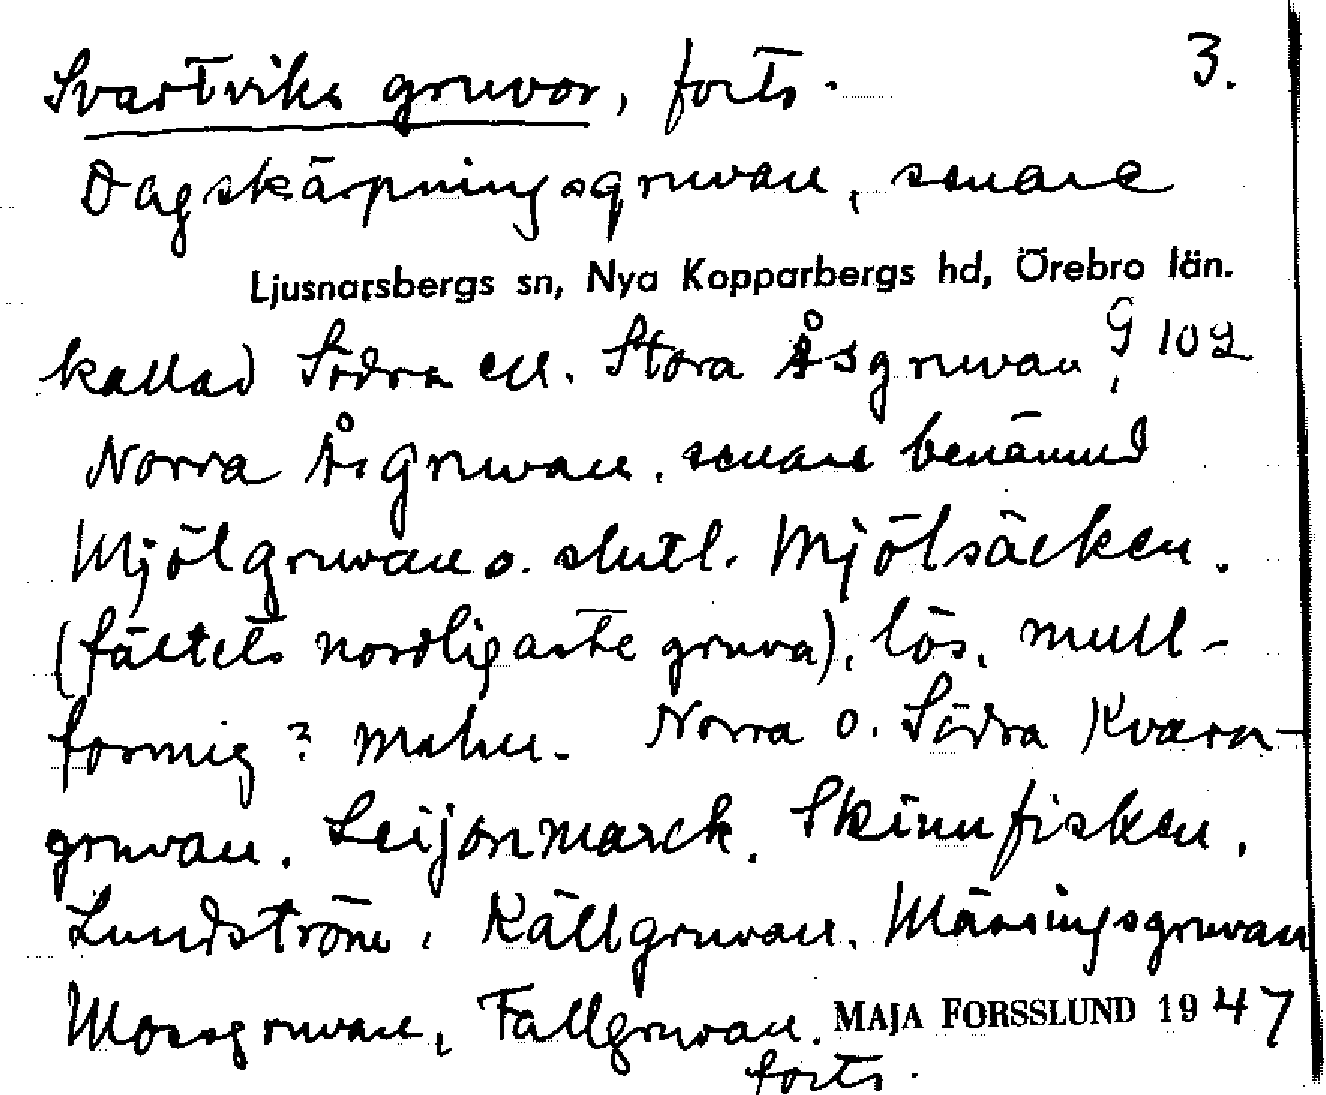 Svartviks gruvor, forts. 3.
Dagskärpningsgruvan, senare
Ljusnarsbergs sn, Nya Kopparbergs hd, Örebro län.
kallad Södra ell. Stora Åsgruvan, G 102
Norra Åsgruvan, senare benämnd
Mjölgruvan o. slutl. Mjölsäcken.
(fältets nordligaste gruva), lös, mull-
formig? malm. Norra o. Södra Kvarn-
gruvan. Leijonmarck. Skinnfisken,
Lundström, Källgruvan. Mässingsgruvan
Mossgruvan, Fallgruvan. MAJA FORSSLUND 1947
forts.